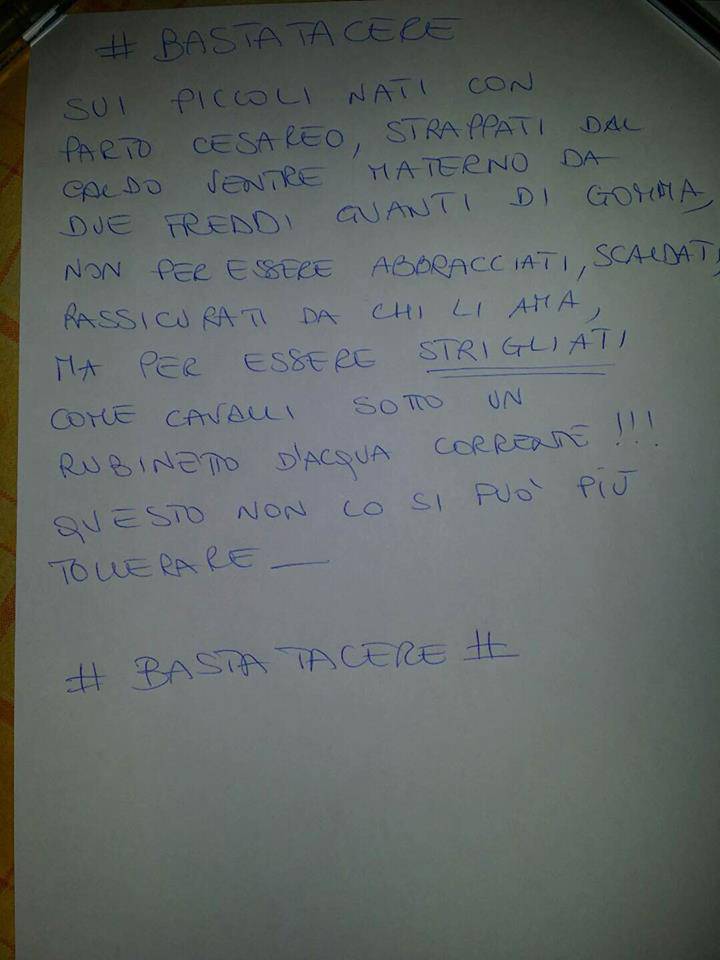 # BASTA TACERE
SUI PICCOLI NATI CON
PARTO CESAREO, STRAPPATI DAL
CALDO VENTRE MATERNO DA
DUE FREDDI GUANTI DI GOMMA,
NON PER ESSERE ABBRACCIATI, SCALDATI,
RASSICURATI DA CHI LI AMA,
MA PER ESSERE STRIGLIATI
COME CAVALLI SOTTO UN
RUBINETTO D'ACQUA CORRENTE!!!
QUESTO NON LO SI PUÒ PIÙ
TOLLERARE —
# BASTA TACERE #